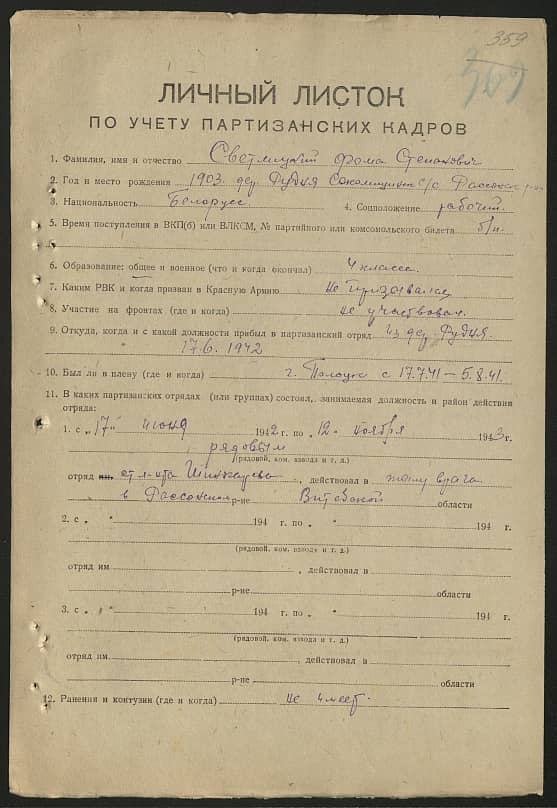 359
369
ЛИЧНЫЙ ЛИСТОК
ПО УЧЕТУ ПАРТИЗАНСКИХ КАДРОВ
1. Фамилия, имя и отчество Светлицкий Фома Степанович
2. Год и место рождения 1903. дер. Рудня с/с
3. Национальность Белорусс. 4. Соцположение рабочий.
5. Время поступления в ВКП(б) или ВЛКСМ, № партийного или комсомольского билета б/п.
6. Образование: общее и военное (что и когда окончал) 4 класса.
7. Каким РВК и когда призван в Красную Армию не призывался
8. Участие на фронтах (где и когда) не участвовал.
9. Откуда, когда и с какой должности прибыл в партизанский отряд из дер. Рудня.
17.6. 1942
10. Был ли в плену (где и когда) г. Полоцк с 17.7.41 — 5.8.41.
11. В каких партизанских отрядах (или группах) состоял, занимаемая должность и район действия
отряда:
1. с „17" июня 1942 г. по „12" ноября 1943 г.
рядовым
(рядовой, ком. взвода и т. д.)
отряд им. ст. л-та , действовал в тылу врага
в Россонском р-не Витебской области
2. с „ " 194 г. по „ " 194 г.
(рядовой, ком. взвода и т. д.)
отряд им , действовал в
р-не области
3. с „ " 194 г. по „ " 194 г.
(рядовой, ком. взвода и т. д.)
отряд им. , действовал в
р-не области
12. Ранения и контузии (где и когда) не имеет.